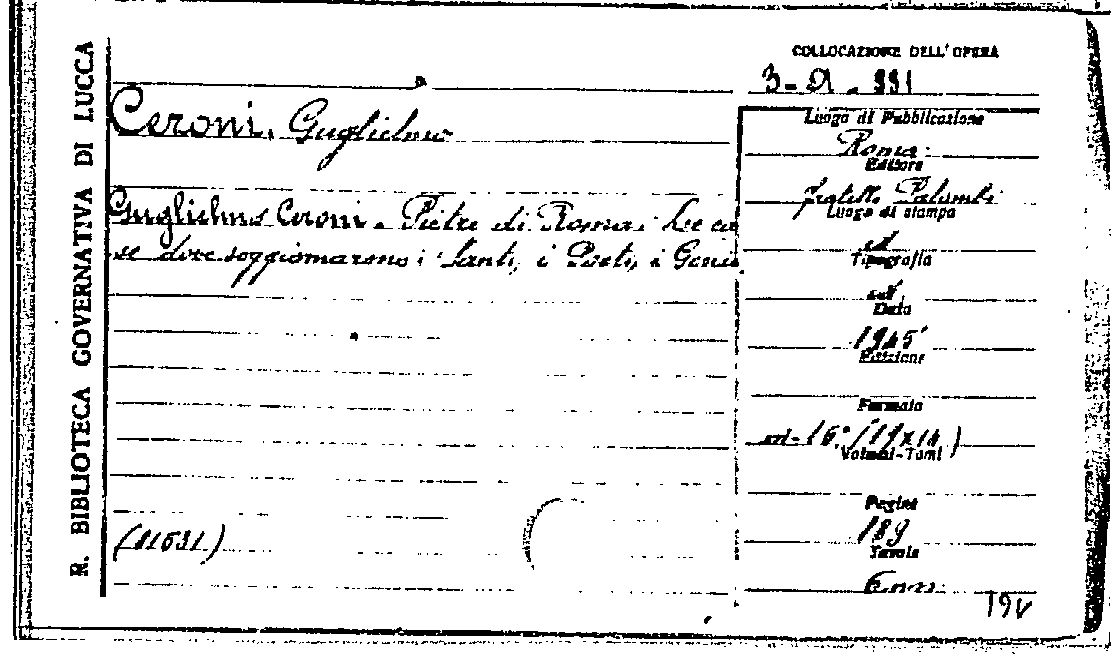 R. BIBLIOTECA GOVERNATIVA DI LUCCA
COLLOCAZIONE DELL'OPERA
Ceroni, Guglielmo
Guglielmo Ceroni. Pietre di Roma: Le ca
se dove soggiornarono i Santi, i Poeti, i Geni
(11531)
Luogo di Pubblicazione
Roma
Editore
fratelli Palombi
Luogo di stampa
id
Tipografia
id
Data
1945
Edizione
Formato
16° (19x14)
Volumi-Tomi
Pagine
189
Tavole